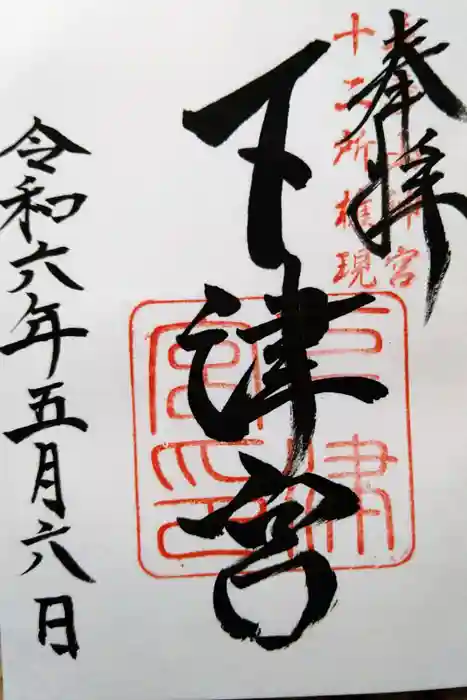 奉拝
十二所権現
下津宮
令和六年五月六日